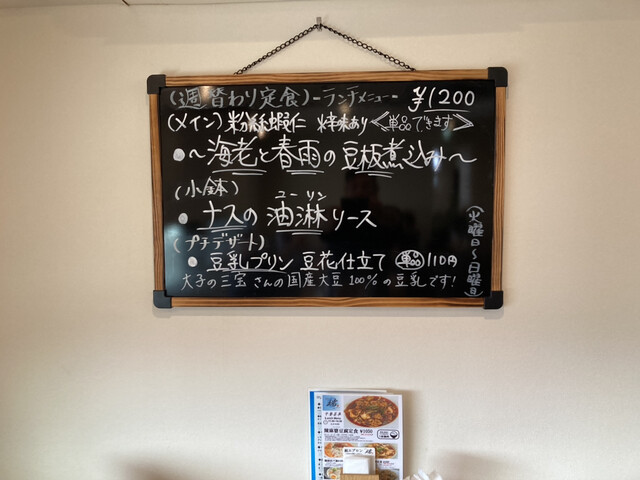 (週替わり定食)-ランチメニュー- ¥1200
(メイン) 粉絲蝦仁 辛味あり <単品できます>
●〜海老と春雨の豆板煮込み〜
(小鉢)
ユーリン
●ナスの油淋リース
(プチデザート)
●豆乳プリン 豆花仕立て 単品110円
大子の三宝さんの国産大豆100%の豆乳です!
(火曜日〜日曜日)
¥1000